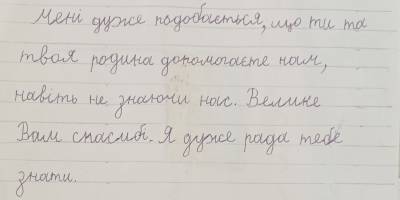 Мені дуже подобається, що ти та
твоя родина допомогаєте нам,
навіть не знаючи нас. Велике
Вам спасибі. Я дуже рада тебе
знати.